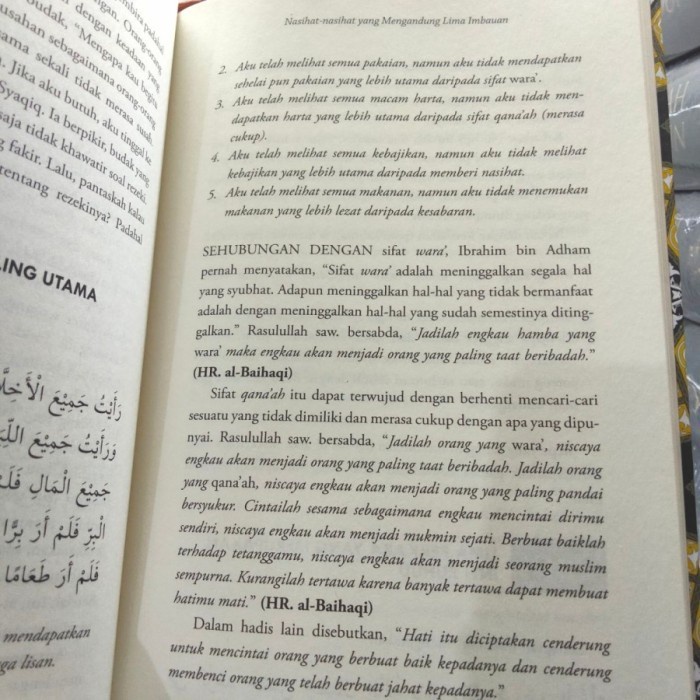 usahan sebagaimana orang-orang
ama sekali tidak merasa susah
. Jika aku butuh, aku tinggal ke
Syaqiq. Ia berpikir, budak yang
saja tidak khawatir soal rezeki
fakir. Lalu, pantaskah kalau
tentang rezekinya? Padahal
LING UTAMA
رَأَيْتُ جَمِيْعَ الْأَخِلَّ
وَرَأَيْتُ جَمِيْعَ اللِّ
جَمِيْعَ الْمَالِ فَلَمْ
الْبِرِّ فَلَمْ أَرَ بِرًّا
فَلَمْ أَرَ طَعَامًا
mendapatkan
ga lisan.
Nasihat-nasihat yang Mengandung Lima Imbauan
2. Aku telah melihat semua pakaian, namun aku tidak mendapatkan
sehelai pun pakaian yang lebih utama daripada sifat wara'.
3. Aku telah melihat semua macam harta, namun aku tidak men-
dapatkan harta yang lebih utama daripada sifat qana'ah (merasa
cukup).
4. Aku telah melihat semua kebajikan, namun aku tidak melihat
kebajikan yang lebih utama daripada memberi nasihat.
5. Aku telah melihat semua makanan, namun aku tidak menemukan
makanan yang lebih lezat daripada kesabaran.
SEHUBUNGAN DENGAN sifat wara', Ibrahim bin Adham
pernah menyatakan, "Sifat wara' adalah meninggalkan segala hal
yang syubhat. Adapun meninggalkan hal-hal yang tidak bermanfaat
adalah dengan meninggalkan hal-hal yang sudah semestinya diting-
galkan." Rasulullah saw. bersabda, "Jadilah engkau hamba yang
wara' maka engkau akan menjadi orang yang paling taat beribadah."
(HR. al-Baihaqi)
Sifat qana'ah itu dapat terwujud dengan berhenti mencari-cari
sesuatu yang tidak dimiliki dan merasa cukup dengan apa yang dipu-
nyai. Rasulullah saw. bersabda, "Jadilah orang yang wara', niscaya
engkau akan menjadi orang yang paling taat beribadah. Jadilah orang
yang qana'ah, niscaya engkau akan menjadi orang yang paling pandai
bersyukur. Cintailah sesama sebagaimana engkau mencintai dirimu
sendiri, niscaya engkau akan menjadi mukmin sejati. Berbuat baiklah
terhadap tetanggamu, niscaya engkau akan menjadi seorang muslim
sempurna. Kurangilah tertawa karena banyak tertawa dapat membuat
hatimu mati." (HR. al-Baihaqi)
Dalam hadis lain disebutkan, "Hati itu diciptakan cenderung
untuk mencintai orang yang berbuat baik kepadanya dan cenderung
membenci orang yang telah berbuat jahat kepadanya."